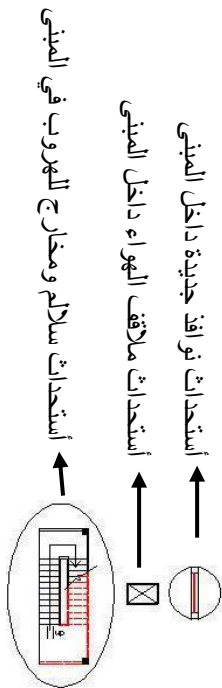 أستحداث نوافذ جديدة داخل المبنى
أستحداث ملاقف الهواء داخل المبنى
أستحداث سلالم ومخارج للهروب في المبنى
up